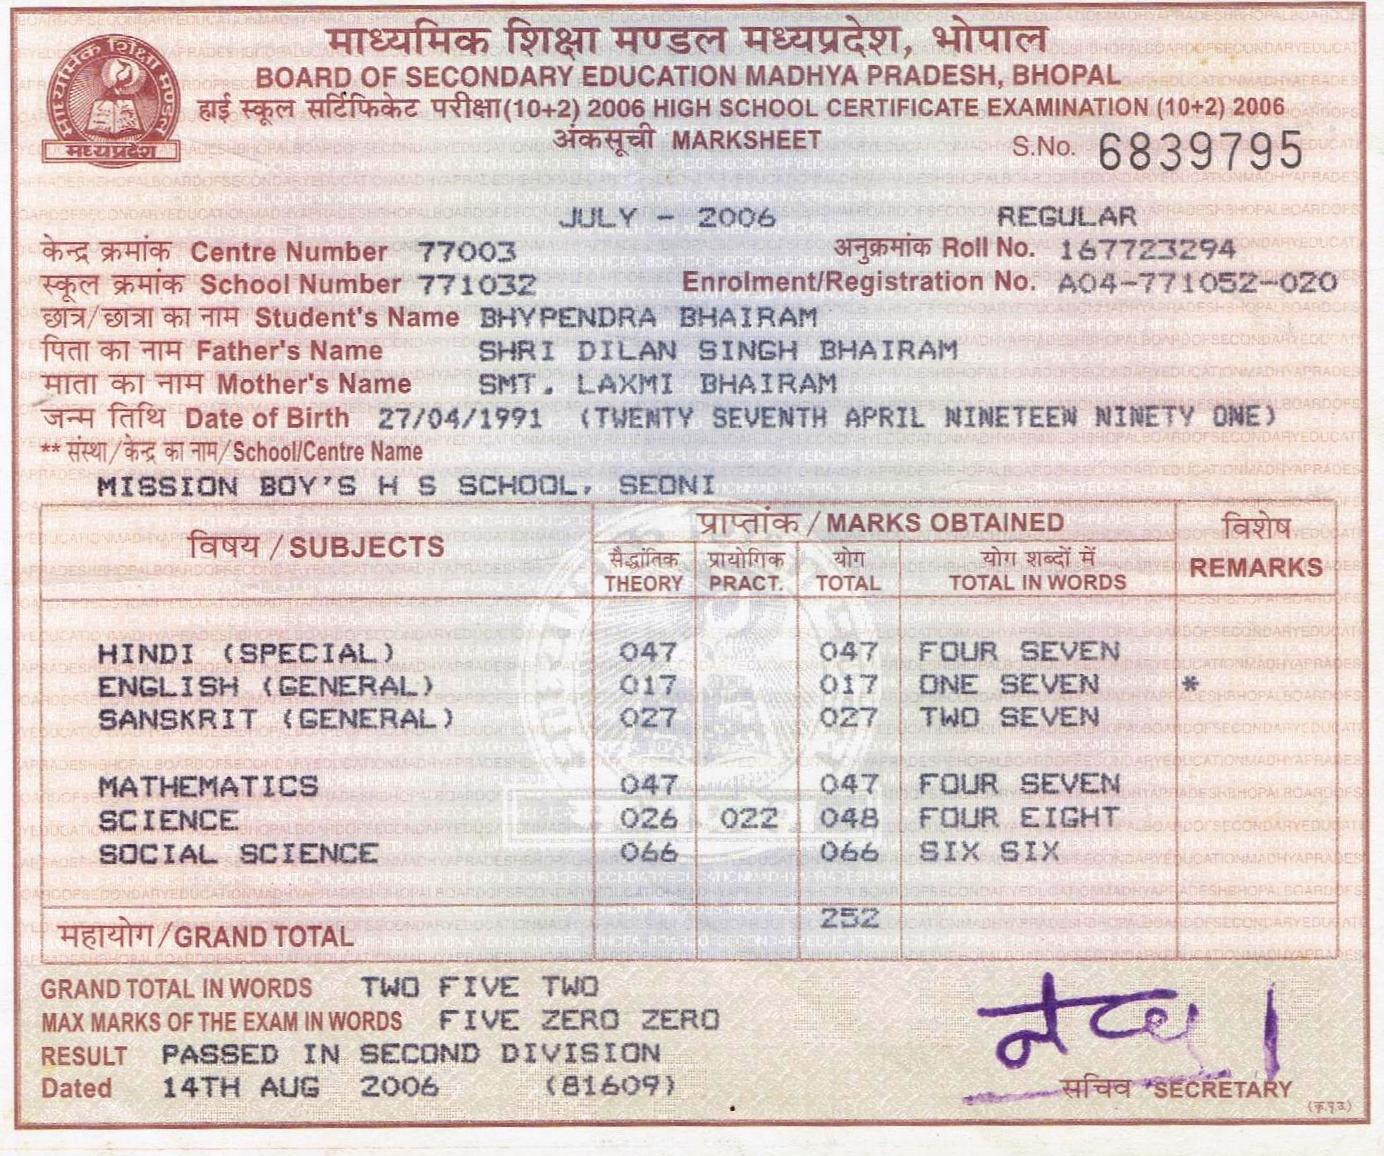 माध्यमिक शिक्षा मण्डल मध्यप्रदेश, भोपाल
BOARD OF SECONDARY EDUCATION MADHYA PRADESH, BHOPAL
हाई स्कूल सर्टिफिकेट परीक्षा(10+2) 2006 HIGH SCHOOL CERTIFICATE EXAMINATION (10+2) 2006
अंकसूची MARKSHEET
S.No. 6839795
माध्यमिक शिक्षा मण्डल
मध्यप्रदेश
JULY - 2006 REGULAR
केन्द्र क्रमांक Centre Number 77003 अनुक्रमांक Roll No. 167723294
स्कूल क्रमांक School Number 771032 Enrolment/Registration No. A04-771052-020
छात्र/छात्रा का नाम Student's Name BHYPENDRA BHAIRAM
पिता का नाम Father's Name SHRI DILAN SINGH BHAIRAM
माता का नाम Mother's Name SMT. LAXMI BHAIRAM
जन्म तिथि Date of Birth 27/04/1991 (TWENTY SEVENTH APRIL NINETEEN NINETY ONE)
** संस्था/केन्द्र का नाम/School/Centre Name
MISSION BOY'S H S SCHOOL, SEONI
विषय/SUBJECTS प्राप्तांक/MARKS OBTAINED विशेष REMARKS
सैद्धांतिक THEORY प्रायोगिक PRACT. योग TOTAL योग शब्दों में TOTAL IN WORDS
HINDI (SPECIAL) 047 047 FOUR SEVEN
ENGLISH (GENERAL) 017 017 ONE SEVEN *
SANSKRIT (GENERAL) 027 027 TWO SEVEN
MATHEMATICS 047 047 FOUR SEVEN
SCIENCE 026 022 048 FOUR EIGHT
SOCIAL SCIENCE 066 066 SIX SIX
महायोग/GRAND TOTAL 252
GRAND TOTAL IN WORDS TWO FIVE TWO
MAX MARKS OF THE EXAM IN WORDS FIVE ZERO ZERO
RESULT PASSED IN SECOND DIVISION
Dated 14TH AUG 2006 (81609)
सचिव SECRETARY